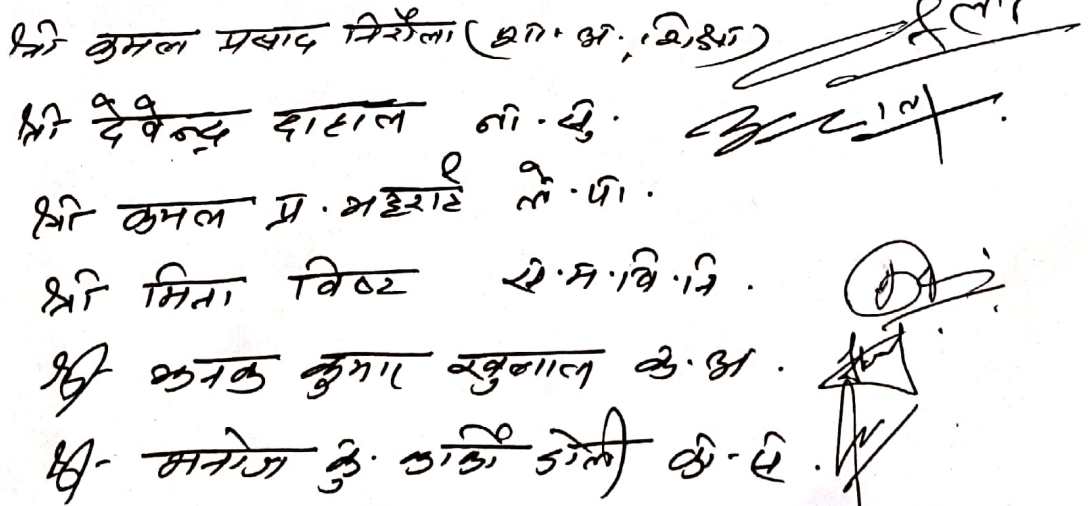 श्री कमल प्रसाद निरौला (शा. अ. शिक्षा)
श्री देवेन्द्र दाहाल ना.सु.
श्री कमल प्र. भट्टराई ले.पा.
श्री मिता विष्ट स.म.वि.नि.
श्री कनक कुमार खुलाल क.अ.
श्री मनोज कु. कार्की ढोली का.स.